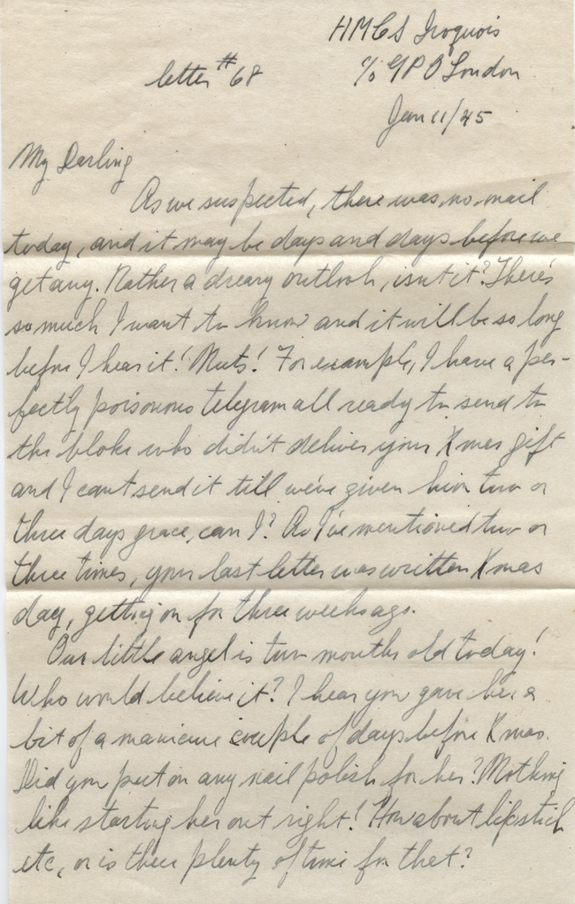 HMCS Iroquois
letter #68
c/o GPO London
Jan 11/45
My Darling
As we suspected, there was no mail
today, and it may be days and days before we
get any. Rather a dreary outlook, isn't it? There's
so much I want to know and it will be so long
before I hear it! Nuts! For example, I have a per-
fectly poisonous telegram all ready to send to
the bloke who didn't deliver your Xmas gift
and I can't send it till we've given him two or
three days grace, can I? As I've mentioned two or
three times, your last letter was written Xmas
day, getting on for three weeks ago.
Our little angel is two months old today!
Who would believe it? I hear you gave her a
bit of a manicure couple of days before Xmas.
Did you put on any nail polish for her? Nothing
like starting her out right! How about lipstick
etc, or is there plenty of time for that?